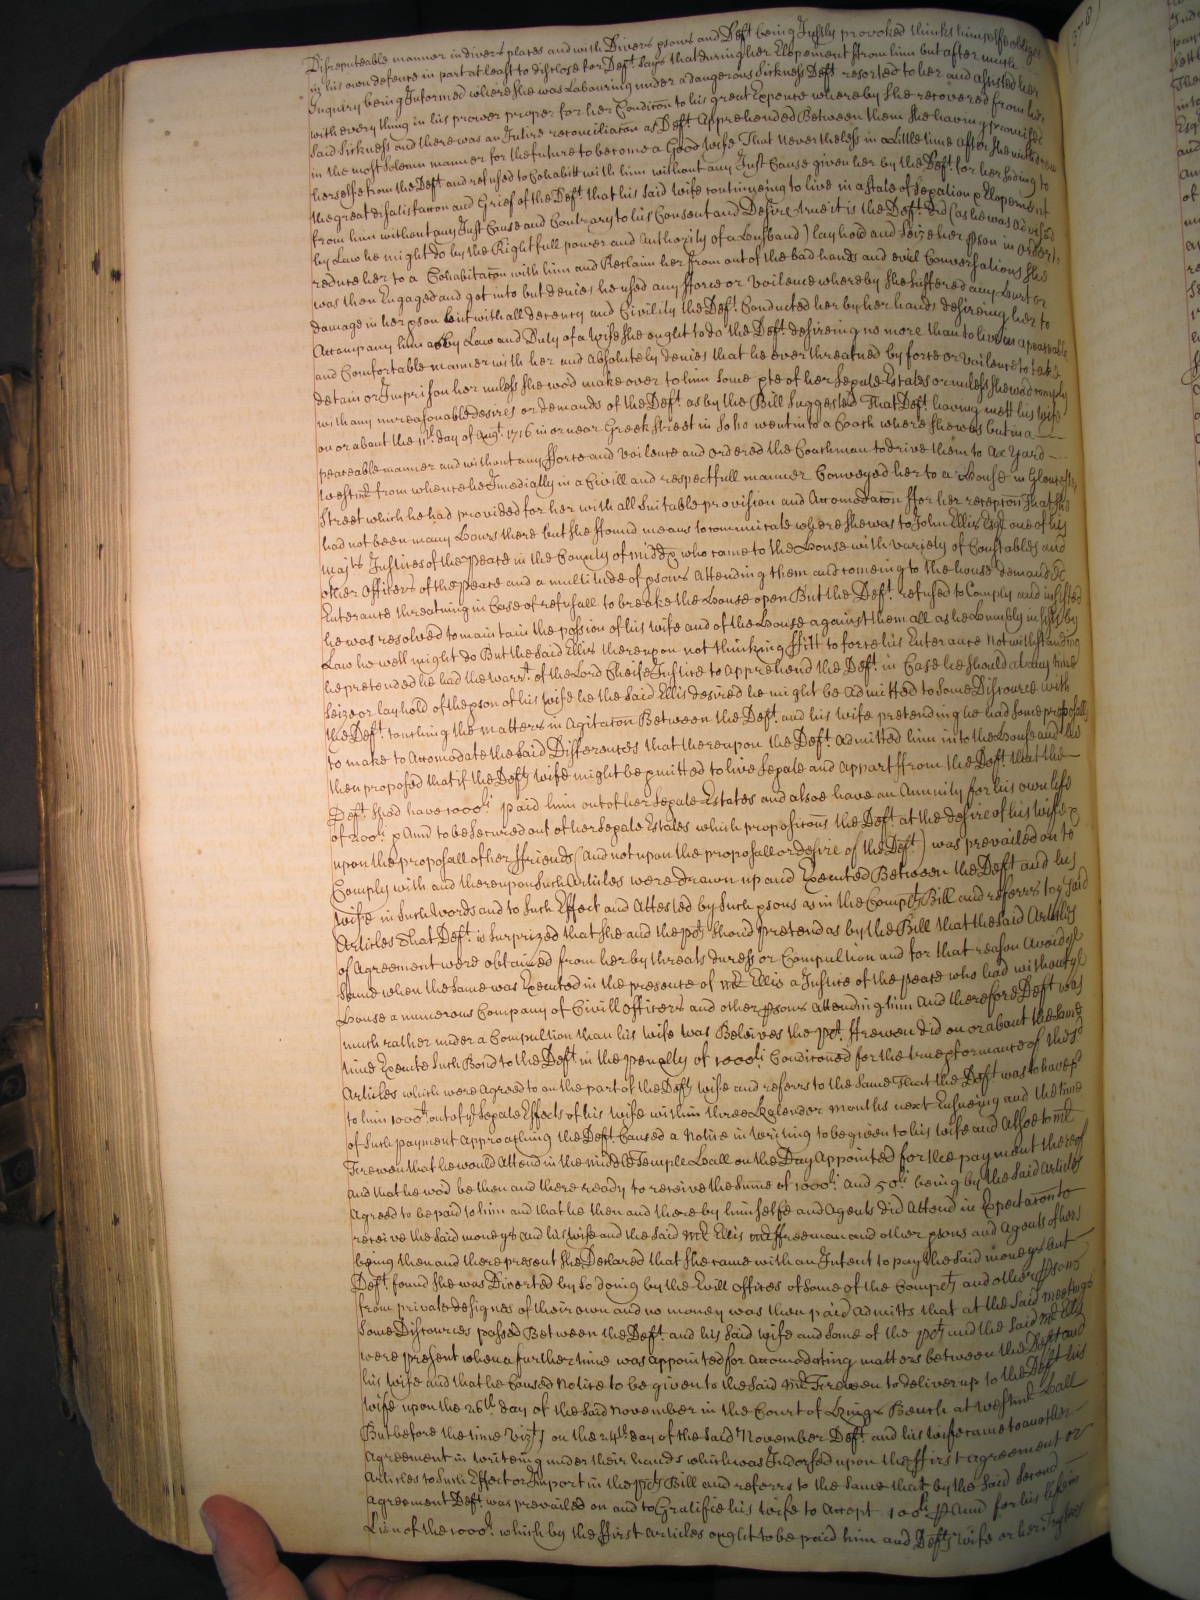 Disreputeable manner in divers places and with Divers psons and Deft being Justly provoked thinks himselfe obliged
in his own defence in part at least to disclose for Deft says that during her Elopement from him but after much
Inquiry being Informed where she was Labouring under a dangerous Sickness Deft resorted to her and assisted her
with every thing in his power proper for her Condicon to his great Expence whereby she recovered from her
said Sickness and there was an Intire reconciliacon as Deft apprehended Between them she having promised
in the most Solemn manner for the future to become a Good wife That nevertheless in a Little time after she withdrew
herselfe from the Deft and refused to Cohabitt with him without any Just Cause given her by the Deft for her soe doing to
the great disatisfaccon and Grief of the Deft that his said wife continueing to live in a State of Sepacon & Elopement
from him without any Just Cause and Contrary to his Consent and Desire true it is the Deft did (as he was advised
by Law he might do by the Rightfull power and Authority of a husband) lay hold and Seize her pson in order to
reduce her to a Cohabitacon with him and Reclaim her from out of the bad hands and evil Conversations she
was then Engaged and got into but denies he used any fforce or voilence whereby she suffered any hurt or
damage in her pson but with all decency and Civility the Deft Conducted her by her hands desireing her to
Accompany him as by Law and Duty of a wife she ought to do the Deft desireing no more than to live in a peaceable
and Comfortable manner with her and absolutely denies that he ever threatned by force or voilence to take
detain or Imprison her unless she wod make over to him some pte of her Sepate Estates or unless she wod comply
with any unreasonable desires or demands of the Deft as by the Bill Suggested That Deft having mett his wife
on or about the 11th day of Augt 1716 in or near Greek Street in Soho went into a Coach where she was but in a
peaceable manner and without any fforce and voilence and ordered the Coachman to drive them to Ax Yard
Westmr from whence he Imediatly in a Civill and respectfull manner Conveyed her to a house in Glouster
Street which he had provided for her with all Suitable provision and Accomodacon ffor her recepcon That she
had not been many hours there but she ffound means to comunicate where she was to John Ellis Esqr one of his
majts Justices of the peace in the County of middx who came to the house with variety of Constables and
other Officers of the peace and a multitude of psons attending them and comeing to the house demanded
Enterance threatning in Case of refusall to breake the house open But the Deft refused to Comply and insisted
he was resolved to maintain the possion of his wife and of the house against them all as he humbly insists by
Law he well might do But the said Ellis thereupon not thinking ffitt to force his Enterance Notwithstanding
he pretended he had the warrt of the Lord Cheife Justice to apprehend the Deft in Case he should at any time
Seize or lay hold of the pson of his wife he the said Ellis desired he might be admitted to Some Discource with
the Deft touching the matters in agitacon Between the Deft and his wife pretending he had some proposalls
to make to Accomodate the said Differences that thereupon the Deft admitted him into the house and he
then proposed that if the Defts wife might be pmitted to live Sepate and appart ffrom the Deft that the
Deft shod have 1000li paid him out of her Sepate Estates and alsoe have an Annuity for his own life
of 200li p Ann to be secured out of her Sepate Estates which proposicons the Deft at the desire of his wife &
upon the proposall of her ffriends (And not upon the proposall or desire of the Deft) was prevailed on to
Comply with and thereupon such Articles were drawn up and Executed Between the Deft and his
wife in such words and to such Effect and Attested by such psons as in the Complts Bill and referrs to ye said
Articles That Deft is Surprized that she and the plts shoud pretend as by the Bill that the said Articles
of Agreement were obtained from her by threats duress or Compultion and for that reason Avoid ye
Same when the same was Executed in the presence of Mr Ellis a Justice of the peace who had without ye
house a numerous Company of Civill Officers and other psons attending him And therefore Deft was
much rather under a Compultion than his wife was Beleives the plt Frewen did on or about the same
time Execute such Bond to the Deft in the penalty of 1000li Conditioned for the true pformance of the sd
Articles which were agreed to on the part of the Defts wife and referrs to the Same That the Deft was to have pd
to him 1000li out of ye Sepate Effects of his wife within three Kalender months next Ensueing and the time
of such payment approaching the Deft Caused a Notice in writeing to be given to his wife and Alsoe to Mr
Frewen that he would Attend in the middle Temple hall on the Day Appointed for the payment thereof
and that he wod be then and there ready to receive the sume of 1000li and 50li being by the said Articles
agreed to be paid to him and that he then and there by himselfe and Agents did Attend in Expectacon to
receive the said moneys and his wife and the said Mr Ellis Freeman and other psons and Agents of hers
being then and there present she Declared that she came with an Intent to pay the said moneys but
Deft found she was Diverted by so doing by the Evill offices of some of the Complts and other psons
from private designes of their own and no money was then paid admitts that at the said meeting
some Discources passed Between the Deft and his said wife and some of the plts and the said Mr Ellis
were present when a further time was appointed for accomodating matters between the Deft and
his wife and that he Caused Notice to be given to the said Mr Frewen to deliver up to the Deft his
wife upon the 26th day of the said November in the Court of Kings Bench at Westmr hall
But before the time vizt on the 24th day of the said November Deft and his wife came to another
Agreement in writeing under their hands which was Indorsed upon the ffirst agreement or
Articles to such Effect or Import in the plts Bill and referrs to the Same that by the said Second
agreement Deft was prevailed on and to Gratifie his wife to Accept 100li p Ann for his life in
Lieu of the 1000li which by the ffirst Articles ought to be paid him and Defts wife or her Trustees